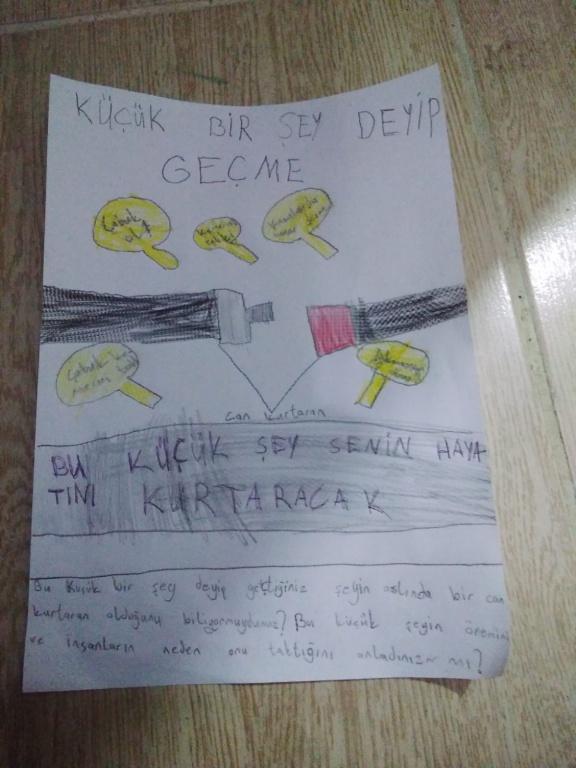 KÜÇÜK BİR ŞEY DEYİP
GEÇME
Çabuk
can kurtaran
BU KÜÇÜK ŞEY SENİN HAYA
TINI KURTARACAK
Bu Küçük bir şey deyip geçtiğiniz şeyin aslında bir can
kurtaran olduğunu biliyormuydunuz? Bu küçük şeyin önemini
ve insanların neden onu taktığını anladınız mı?